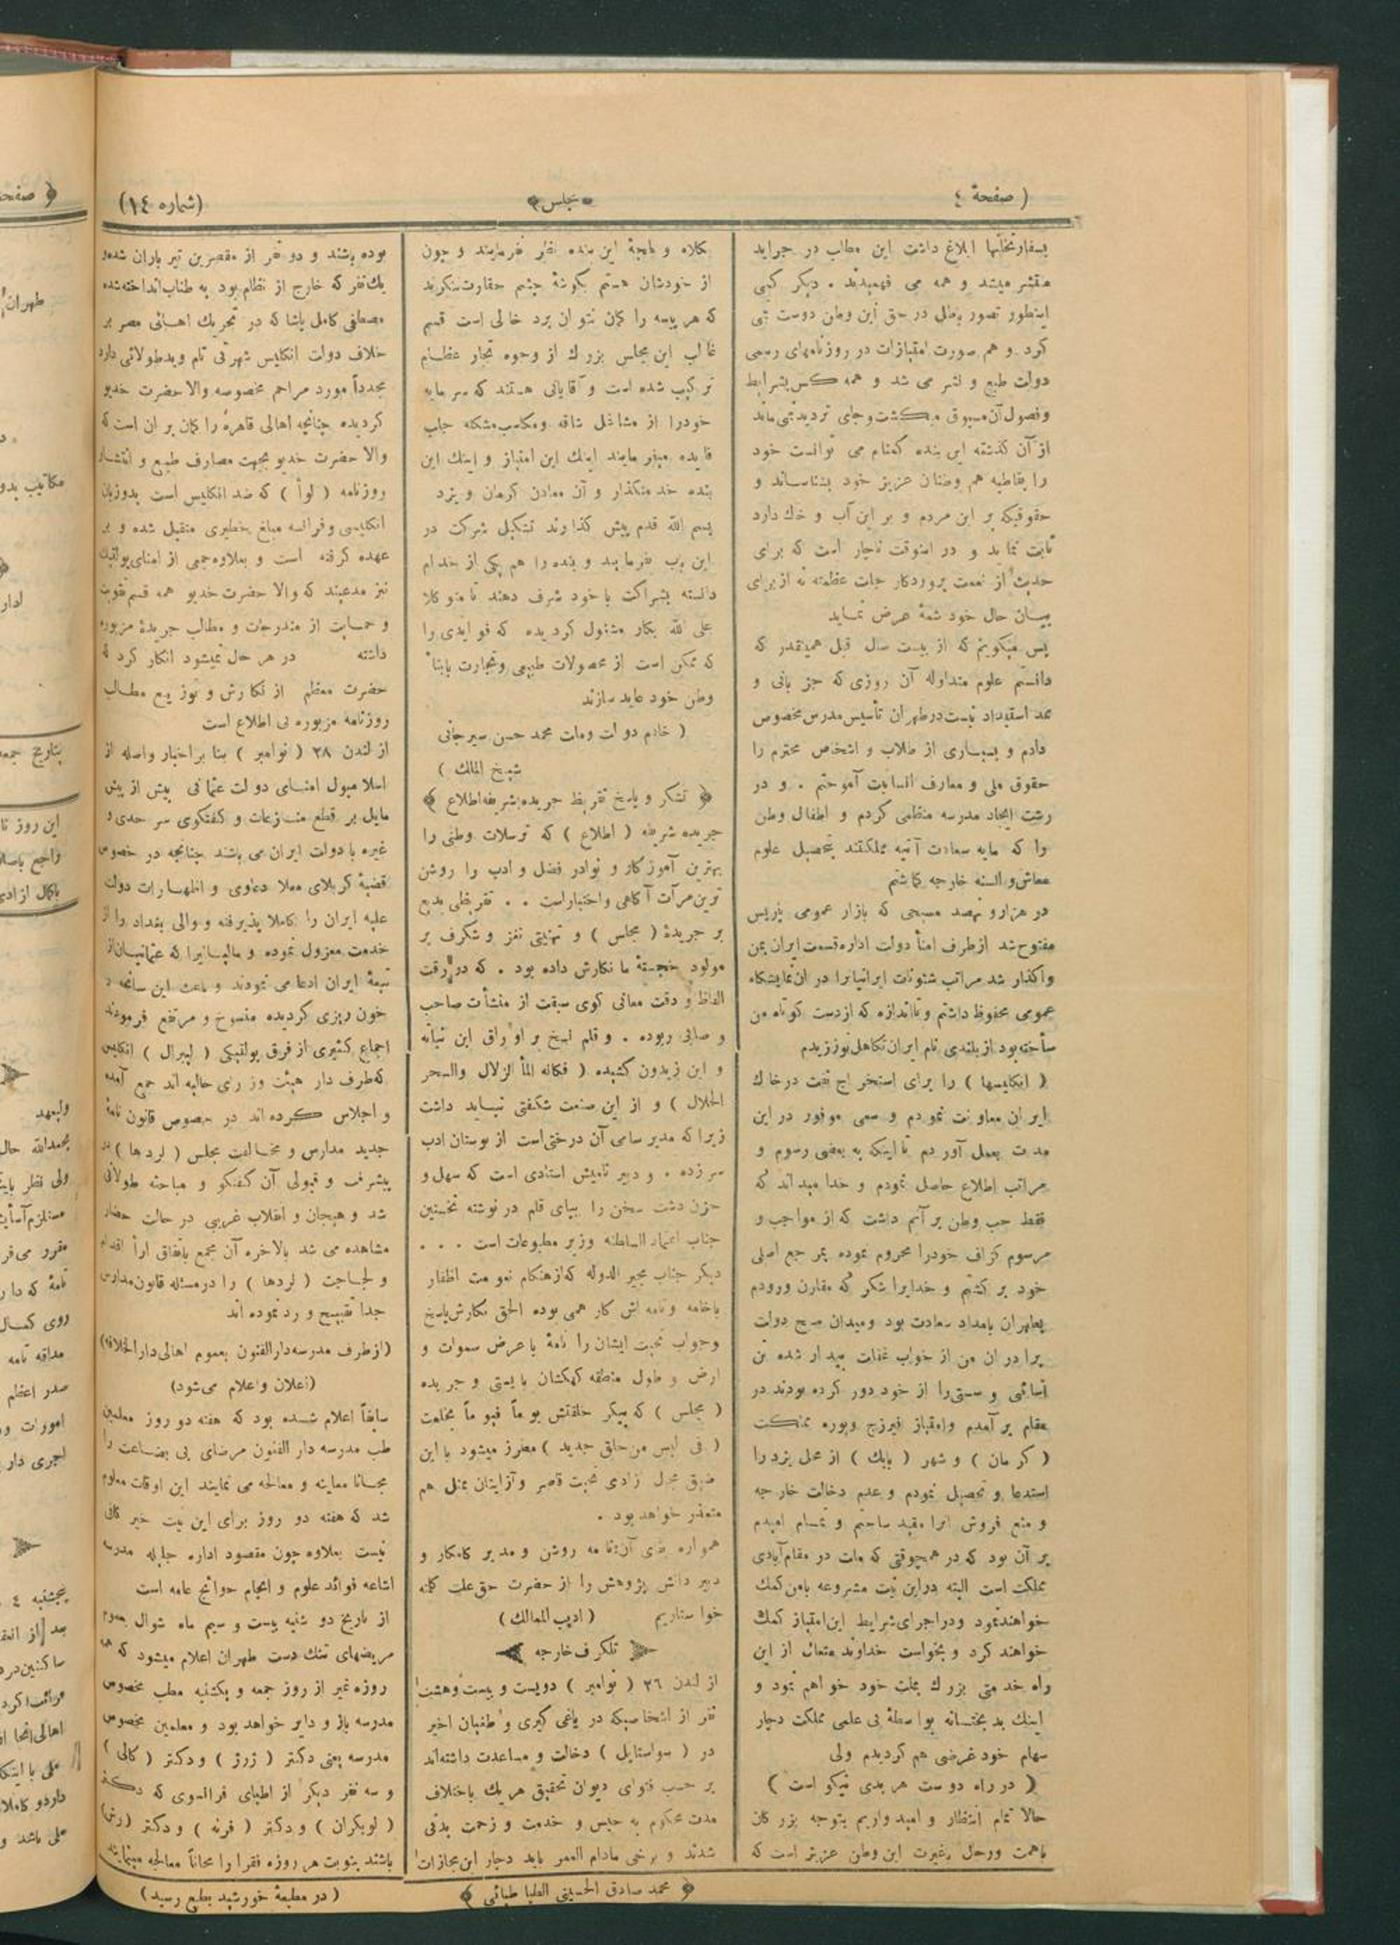 ( صفحهٔ ٤
مجلس
(شماره ١٤)
بسفارتخانها ابلاغ داشت این مطالب در جراید
منتشر میشد و همه می فهمیدند . دیگر کسی
اینطور تصور باطل در حق این وطن دوست نمی
کرد و هم صورت امتیازات در روزنامهای رسمی
دولت طبع و نشر می شد و همه کس بشرایط
و فصول آن مسبوق میگشت وجای تردید نمی ماند
از آن گذشته این بنده گمنام می توانست خود
را بقاطبه هم وطنان عزیز خود بشناساند و
حقوقیکه بر این مردم و بر این آب و خاك دارد
ثابت نماید و در اینوقت ناچار است که برای
حدیث از نعمت پروردگار جلت عظمته نه از برای
بیان حال خود شمهٔ عرض نماید
پس میگویم که از بیست سال قبل همینقدر که
دانستم علوم متداوله آن روزی که جز بانی و
ممد استبداد نیست در طهران تأسیس مدرس مخصوص
دادم و بسیاری از طلاب و اشخاص محترم را
حقوق ملی و معارف انسانیت آموختم . و در
رشت ایجاد مدرسه منظمی کردم و اطفال وطن
را که مایه سعادت آتیه مملکتند بتحصیل علوم
معاش و السنه خارجه گماشتم
در هزارو نهصد مسیحی که بازار عمومی پاریس
مفتوح شد ازطرف امنأ دولت اداره قسمت ایران بمن
واگذار شد مراتب شئونات ایرانیانرا در ان نمایشگاه
عمومی محفوظ داشتم و تااندازه که ازدست کوتاه من
ساخته بود از بلندی نام ایران تکاهل نورزیدم
( انگلیسها ) را برای استخراج نفت درخاك
ایران معاونت نمودم و سعی موفور در این
مدت بعمل آوردم تا اینکه به بعضی رسوم و
مراتب اطلاع حاصل نمودم و خدا میداند که
فقط حب وطن بر آنم داشت که از مواجب و
مرسوم گزاف خودرا محروم نموده بمرجع اصلی
خود بر گشتم و خدایرا شکر که مقارن ورودم
بطهران بامداد سعادت بود ومیدان صبح دولت
برادران من از خواب غفلت بیدار شده تن
آسائی و سستی را از خود دور کرده بودند در
مقام بر آمدم وامتیاز فیروزج وبوره مملکت
( کرمان ) و شهر ( بابك ) از محل یزد را
استدعا و تحصیل نمودم و عدم دخالت خارجه
و منع فروش انرا مقید ساختم و تمام امیدم
بر آن بود که در همچوقتی که ملت در مقام آبادی
مملکت است البته دراین نیت مشروعه بامن کمك
خواهند نمود ودر اجرای شرایط این امتیاز کمك
خواهند کرد و بخواست خداوند متعال از این
راه خدمتی بزرك بملت خود خواهم نمود و
اینك بدبختانه بواسطهٔ بی علمی مملکت دچار
سهام خود غرضی هم گردیدم ولی
( در راه دوست هر بدی نیکو است )
حالا تمام انتظار و امید واریم بتوجه بزرگان
باهمت ورجال بغیرت این وطن عزیز است که
بکلاه و نامهٔ این بنده نظر نفرمایند و چون
از خودشان هستم بگوشهٔ چشم حقارت ننگرند
که هر بیسه را گمان نتوان برد خالی است قسم
غالب این مجلس بزرك از وجوه تجار عظام
ترکیب شده است و آقایانی هستند که سرمایه
خودرا از مشاغل شاقه ومکاسب مشکله جلب
فایده میفرمایند اینك این امتیاز و اینك این
بنده خدمتگذار و آن معادن کرمان و یزد
بسم الله قدم پیش گذارند تشکیل شرکت در
این باب بفرمایند و بنده را هم یکی از خدام
دانسته بشراکت با خود شرف دهند تا متوکلا
علی الله بکار مشغول گردیده که فوایدی را
که ممکن است از محصولات طبیعی وتجارت بابناء
وطن خود عاید سازند
( خادم دولت وملت محمد حسن سیرجانی
شیخ الممالك )
﴿ تشکر و پاسخ تقریظ جریده شریفه اطلاع ﴾
جریده شریفه ( اطلاع ) که ترسلات وطنی را
بهترین آموزگار و نوادر فضل و ادب را روشن
ترین مرآت آگاهی واختیار است . . تقریظی بدیع
بر جریدهٔ ( مجلس ) و تهنیتی نغز و شگرف بر
مولود خجستهٔ ما نگارش داده بود . که در رقت
الفاظ و دقت معانی گوی سبقت از منشأت صاحب
و صابی ربوده . و قلم نسخ بر اوراق ابن نباته
و ابن زیدون کشیده ( فکانه المأ الزلال والسحر
الحلال ) و از این صنعت شگفتی نباید داشت
زیرا که مدیر سامی آن درختی است از بوستان ادب
سرزده . و دبیر نامیش استادی است که سهل و
حزن دشت سخن را بپای قلم در نوشته نخستین
جناب اعتماد السلطنه وزیر مطبوعات است . . .
دیگر جناب مجیر الدوله که ازهنگام نعومت اظفار
باخامه ونامه اش کار همی بوده الحق نگارش پاسخ
وجواب تحیت ایشان را نامهٔ با عرض سموات و
ارض و طول منطقه کهکشان بایستی و جریده
( مجلس ) که پیکر خلقتش یوماً فیوماً بخلعت
( فی لبس من خلق جدید ) مطرز میشود با این
ضیق مجال ازادی تحیت قاصر و آزایشان بمثل هم
متعذر خواهد بود .
همواره بقای آن نامه روشن و مدیر کامکار و
دبیر دانش پژوهش را از حضرت حق علت کلمته
خواستاریم ( ادیب الممالك )
تلگراف خارجه
از لندن ٢٦ ( نوامبر ) دویست و بیست و هشت
نفر از اشخاصیکه در یاغی گیری و طغیان اخیر
در ( سواستاپل ) دخالت و مساعدت داشته‌اند
بر حسب فتوای دیوان تحقیق هر یك باختلاف
مدت محکوم به حبس و خدمت و زحمت بدنی
شدند و برخی مادام العمر باید دچار این مجازات
بوده باشند و دو نفر از مقصرین تیر باران شده و
یك نفر که خارج از نظام بود به طناب انداخته شده
مصطفی کامل پاشا که در تحریك اهالی مصر بر
خلاف دولت انگلیس شهرتی تام ویدطولائی دارد
مجدداً مورد مراحم مخصوصه والا حضرت خدیو
گردیده چنانچه اهالی قاهره را گمان بر ان است که
والا حضرت خدیو بجهت مصارف طبع و انتشار
روزنامه ( لوأ ) که ضد انگلیس است بدوزبان
انگلیسی و فرانسه مبلغ خطیری متقبل شده و بر
عهده گرفته است و بعلاوه جمعی از امنای پولتیك
نیز مدعیند که والا حضرت خدیو همه قسم تقویت
و حمایت از مندرجات و مطالب جریدهٔ مزبوره
داشته در هر حال نمیشود انکار کرد که
حضرت معظم از نگارش و توزیع مطالب
روزنامه مزبوره بی اطلاع است
از لندن ٢٨ ( نوامبر ) بنا بر اخبار واصله از
اسلامبول امنای دولت عثمانی بیش از پیش
مایل بر قطع منازعات و گفتگوی سرحدی و
غیره با دولت ایران می باشند چنانچه در خصوص
قضیهٔ کربلای معلا دعاوی و اظهارات دولت
علیه ایران را کاملا پذیرفته و والی بغداد را از
خدمت معزول نموده و مالیاتیرا که عثمانیان از
تبعهٔ ایران ادعا می نمودند و باعث این سانحه و
خون ریزی گردیده منسوخ و مرتفع فرمودند
اجماع کثیری از فرق پولتیکی ( لیبرال ) انگلیس
که طرف دار هیئت وزرای حالیه اند جمع آمده
و اجلاس کرده اند در خصوص قانون نامهٔ
جدید مدارس و مخالفت مجلس ( لردها ) در
پیشرفت و قبولی آن گفتگو و مباحثه طولانی
شد و هیجان و انقلاب غریبی در حالت حضار
مشاهده می شد بالاخره آن مجمع باتفاق ارأ اقدام
و لجاجت ( لردها ) را درمسئله قانون مدارس
جداً تقبیح و رد نموده اند
(از طرف مدرسه دارالفنون بعموم اهالی دارالخلافه)
(اعلان و اعلام می شود)
سابقاً اعلام شده بود که هفته دو روز معلمین
طب مدرسه دار الفنون مرضای بی بضاعت را
مجانا معاینه و معالجه می نمایند این اوقات معلوم
شد که هفته دو روز برای این نیت خیر کافی
نیست بعلاوه چون مقصود اداره جلیله مدرسه
اشاعه فوائد علوم و انجام حوائج عامه است
از تاریخ دو شنبه بیست و سیم ماه شوال بعموم
مریضهای تنك دست طهران اعلام میشود که همه
روزه غیر از روز جمعه و یکشنبه مطب مخصوص
مدرسه باز و دایر خواهد بود و معلمین مخصوص
مدرسه یعنی دکتر ( ژرژ ) و دکتر ( گالی )
و سه نفر دیگر از اطبای فرانسوی که دکتر
( لوبکران ) و دکتر ( فرنه ) و دکتر
باشند بنوبت هر روزه فقرا را مجاناً معالجه مینمایند
﴿ محمد صادق الحسینی الطباطبائی ﴾
( در مطبعهٔ خورشید بطبع رسید )
﴿ صفحه
طهران